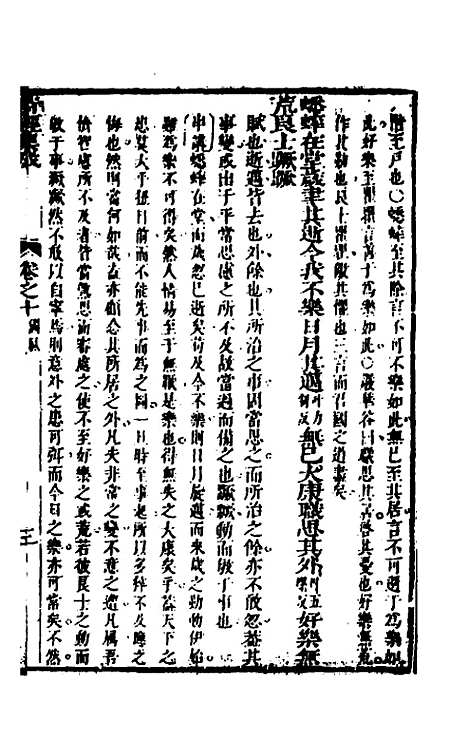 階至戶也〇蟋蟀至其除言不可不樂如此無已至其居言不可過于爲樂如
此好樂至瞿瞿言善于爲樂如此〇嚴華谷曰職思其居啓其憂也好樂無荒
作其勤也良士瞿瞿儆其懼也三言而君國之道盡矣
蟋蟀在堂歲聿其逝今我不樂日月其邁無已大康職思其外好樂無
荒良士蹶蹶
賦也逝邁皆去也外餘也其所治之事固當思之而所治之餘亦不敢忽蓋其
事變或出于平常思慮之所不及故當過而備之也蹶蹶動而敏于事也
申講蟋蟀在堂而歲忽已逝矣苟及今不樂則日月於邁而來歲之勤動伊始
雖爲樂不可得矣然人情易至于無厭是樂也得無失之大康矣乎蓋天下之
患莫大乎在目前而不能先事而爲之圖一旦時至事起所以多補不及陲之
悔也然則當何如哉蓋亦顧念其所居之外凡夫非常之變不意之遭凡風吾
智慮所不及者皆當思而審處之使不至好樂之或荒若彼良士之動而
敏于事蹶蹶然不敢以自寧焉則意外之患可弭而今日之樂亦可常矣不然
卷之十 國風